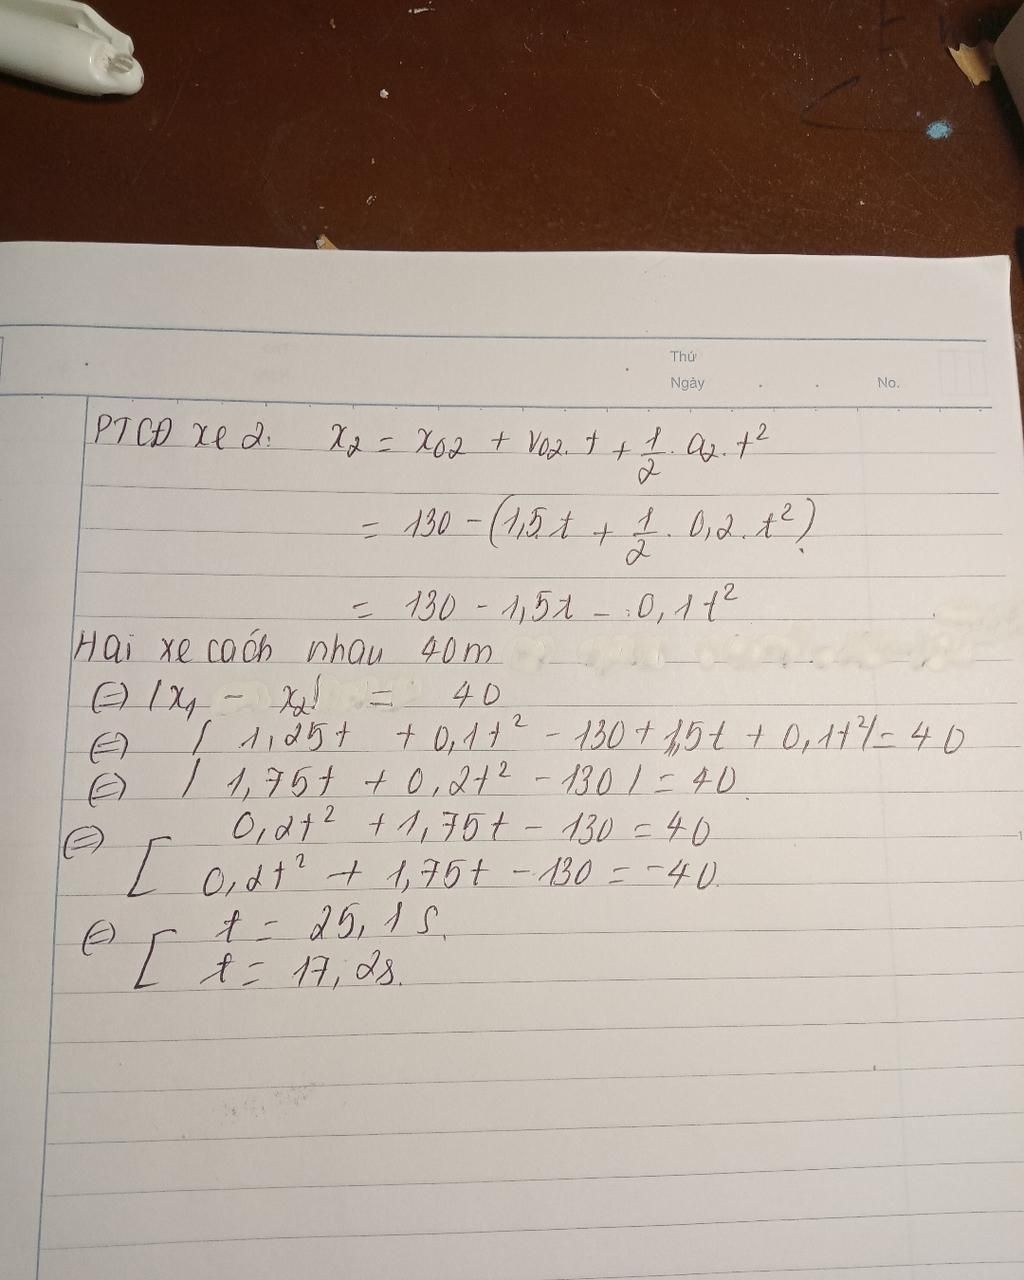 Thứ
Ngày . . No.
PTCĐ xe 2: x₂ = x₀₂ + v₀₂.t + 1/2 . a₂.t²
= 130 - (1,5.t + 1/2 . 0,2.t²).
= 130 - 1,5t - 0,1t²
Hai xe cách nhau 40m
⇔ |x₁ - x₂| = 40
⇔ | 1,25t + 0,1t² - 130 + 1,5t + 0,1t²| = 40
⇔ | 1,75t + 0,2t² - 130 | = 40
⇔ [ 0,2t² + 1,75t - 130 = 40
0,2t² + 1,75t - 130 = -40
⇔ [ t = 25,1 s.
t = 17,2s.